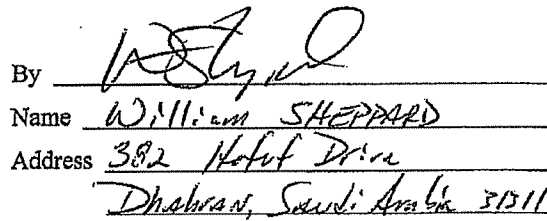 By
Name William SHEPPARD
Address 382 Hofuf Drive
Dhahran, Saudi Arabia 31311